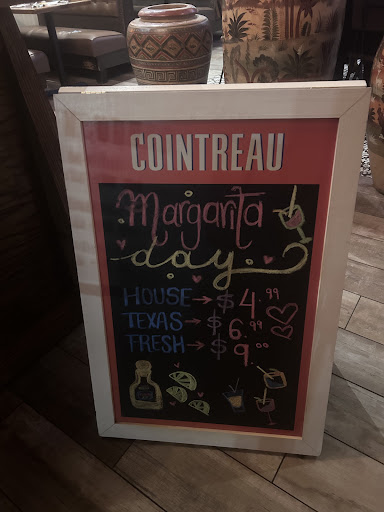 COINTREAU
Margarita
day
HOUSE → $4.99
TEXAS → $6.99
FRESH → $9.00